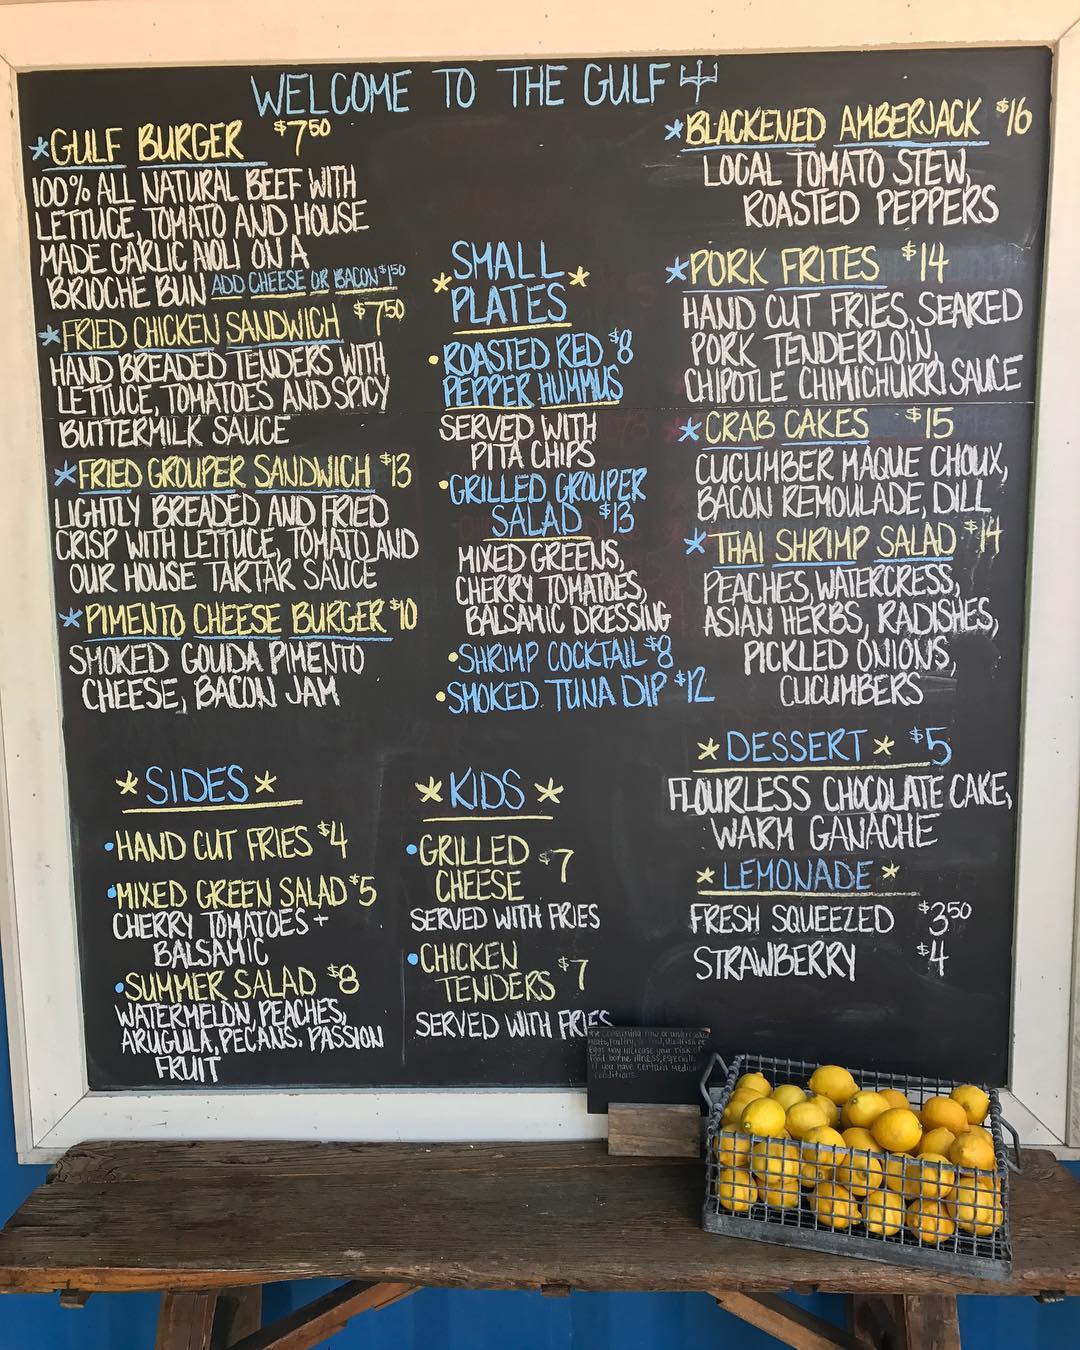 WELCOME TO THE GULF
*GULF BURGER $7.50
100% ALL NATURAL BEEF WITH
LETTUCE, TOMATO AND HOUSE
MADE GARLIC AIOLI ON A
BRIOCHE BUN ADD CHEESE OR BACON $1.50
*FRIED CHICKEN SANDWICH $7.50
HAND BREADED TENDERS WITH
LETTUCE, TOMATOES AND SPICY
BUTTERMILK SAUCE
*FRIED GROUPER SANDWICH $13
LIGHTLY BREADED AND FRIED
CRISP WITH LETTUCE, TOMATO AND
OUR HOUSE TARTAR SAUCE
*PIMENTO CHEESE BURGER $10
SMOKED GOUDA PIMENTO
CHEESE, BACON JAM
*SMALL
PLATES*
•ROASTED RED $8
PEPPER HUMMUS
SERVED WITH
PITA CHIPS
•GRILLED GROUPER
SALAD $13
MIXED GREENS,
CHERRY TOMATOES,
BALSAMIC DRESSING
•SHRIMP COCKTAIL $8
•SMOKED TUNA DIP $12
*BLACKENED AMBERJACK $16
LOCAL TOMATO STEW,
ROASTED PEPPERS
*PORK FRITES $14
HAND CUT FRIES, SEARED
PORK TENDERLOIN,
CHIPOTLE CHIMICHURRI SAUCE
*CRAB CAKES $15
CUCUMBER MAQUE CHOUX,
BACON REMOULADE, DILL
*THAI SHRIMP SALAD $14
PEACHES, WATERCRESS,
ASIAN HERBS, RADISHES,
PICKLED ONIONS,
CUCUMBERS
*SIDES*
•HAND CUT FRIES $4
•MIXED GREEN SALAD $5
CHERRY TOMATOES +
BALSAMIC
•SUMMER SALAD $8
WATERMELON, PEACHES,
ARUGULA, PECANS, PASSION
FRUIT
*KIDS*
•GRILLED
CHEESE $7
SERVED WITH FRIES
•CHICKEN
TENDERS $7
SERVED WITH FRIES
*DESSERT* $5
FLOURLESS CHOCOLATE CAKE,
WARM GANACHE
*LEMONADE*
FRESH SQUEEZED $3.50
STRAWBERRY $4
consuming raw or
meats, poultry, shellfish or
Eggs may increase your risk of
food borne illness, especially
if you have certain medical
conditions.